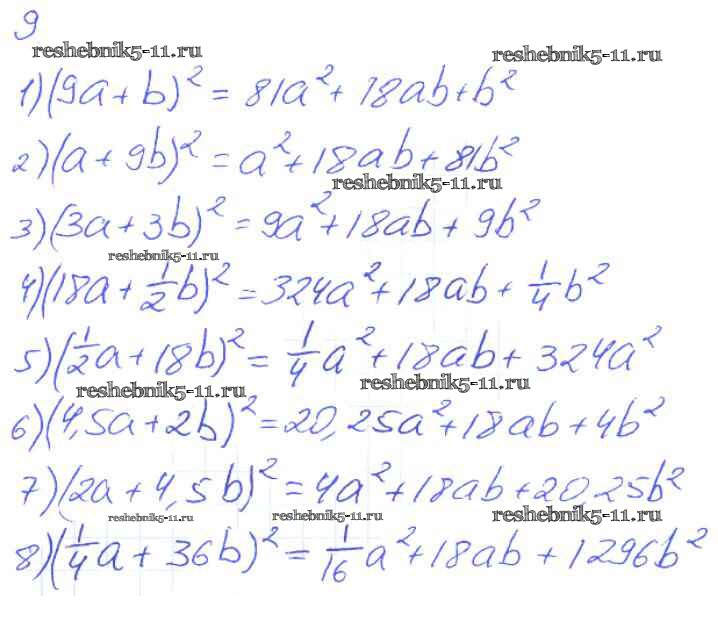 9
reshebnik5-11.ru
reshebnik5-11.ru
1) (9a + b)² = 81a² + 18ab + b²
2) (a + 9b)² = a² + 18ab + 81b²
reshebnik5-11.ru
3) (3a + 3b)² = 9a² + 18ab + 9b²
reshebnik5-11.ru
4) (18a + 1/2 b)² = 324a² + 18ab + 1/4 b²
5) (1/2 a + 18b)² = 1/4 a² + 18ab + 324a²
reshebnik5-11.ru
reshebnik5-11.ru
6) (4,5a + 2b)² = 20,25a² + 18ab + 4b²
7) (2a + 4,5b)² = 4a² + 18ab + 20,25b²
reshebnik5-11.ru
reshebnik5-11.ru
reshebnik5-11.ru
8) (1/4 a + 36b)² = 1/16 a² + 18ab + 1296b²